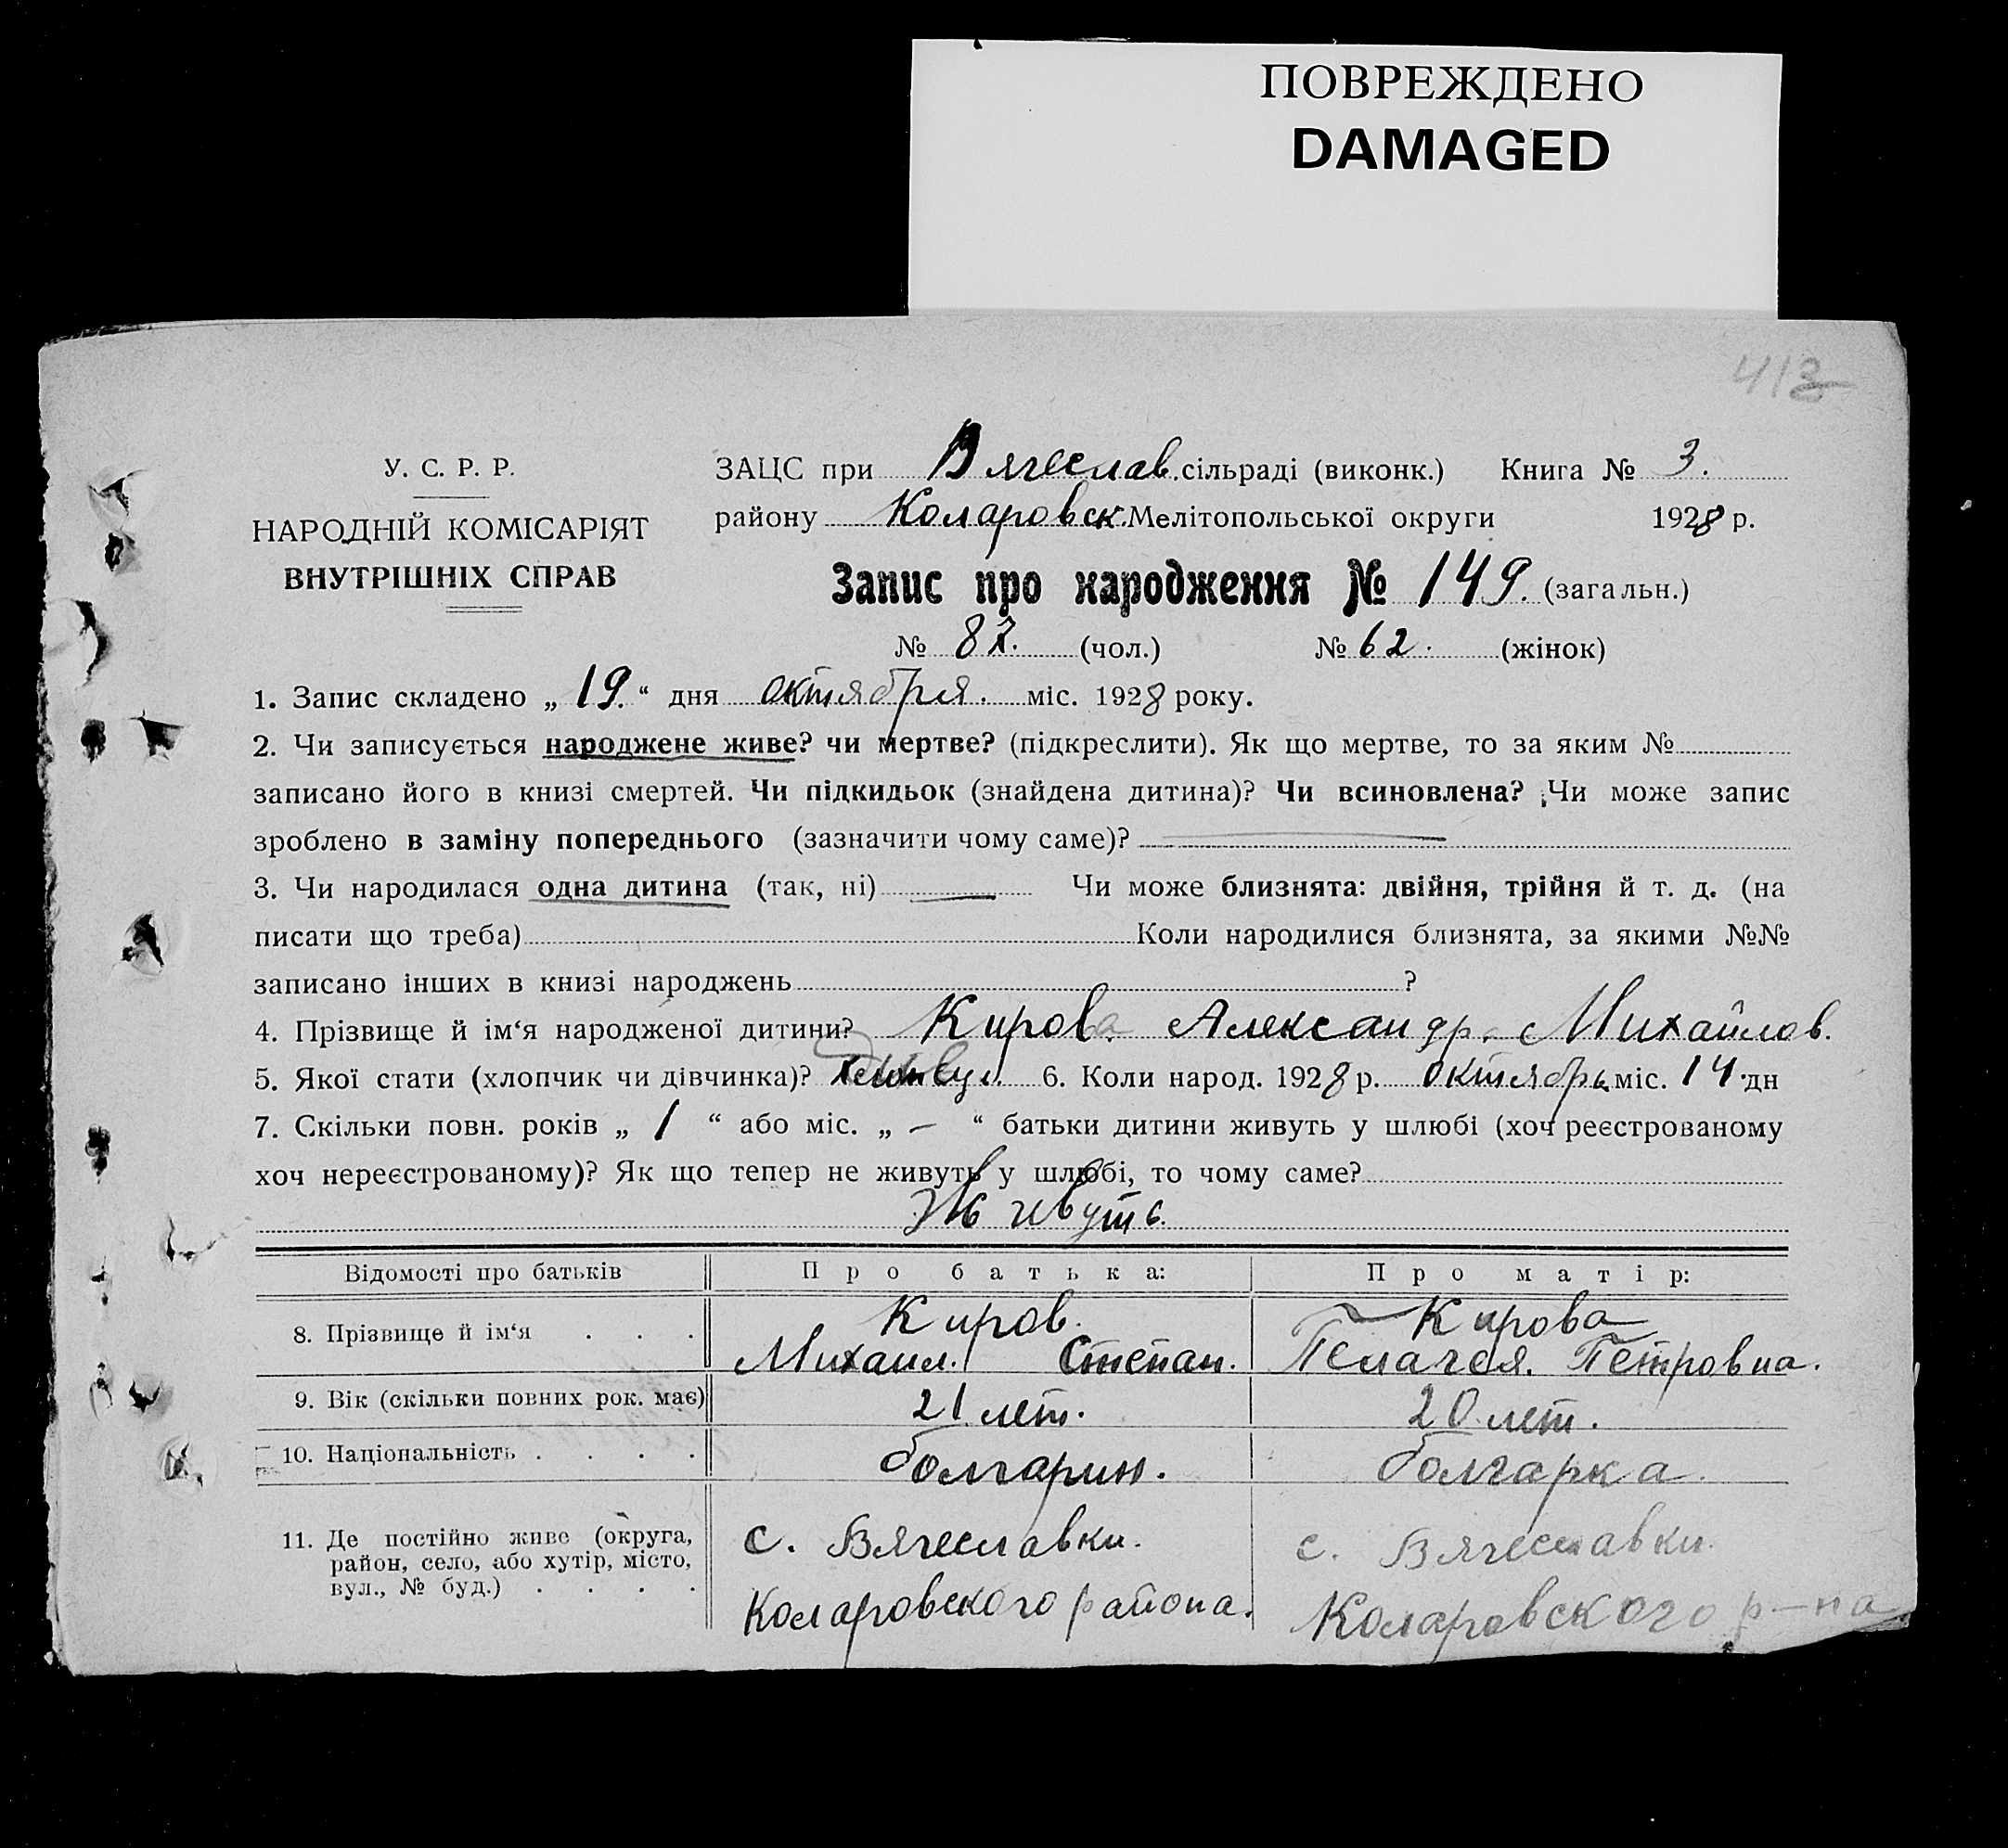 ПОВРЕЖДЕНО
DAMAGED
413
У. С. Р. Р.
НАРОДНІЙ КОМІСАРІЯТ
ВНУТРІШНІХ СПРАВ
ЗАЦС при Вячеслав. сільраді (виконк.) Книга № 3.
району Коларовск. Мелітопольської округи 1928 р.
Запис про народження № 149. (загальн.)
№ 87. (чол.) № 62. (жінок)
1. Запис складено „ 19. “ дня октября. міс. 1928 року.
2. Чи записується народжене живе? чи мертве? (підкреслити). Як що мертве, то за яким №
записано його в книзі смертей. Чи підкидьок (знайдена дитина)? Чи всиновлена? Чи може запис
зроблено в заміну попереднього (зазначити чому саме)?
3. Чи народилася одна дитина (так, ні) Чи може близнята: двійня, трійня й т. д. (на
писати що треба) Коли народилися близнята, за якими №№
записано інших в книзі народжень ?
4. Прізвище й ім‘я народженої дитини? Кирова Александр. Михайлов.
5. Якої стати (хлопчик чи дівчинка)? 6. Коли народ. 1928 р. октябрь міс. 14 дн
7. Скільки повн. років „ 1 “ або міс. „ — “ батьки дитини живуть у шлюбі (хоч реєстрованому
хоч нереєстрованому)? Як що тепер не живуть у шлюбі, то чому саме?
Живуть.
Відомості про батьків Про батька: Про матір:
8. Прізвище й ім‘я . . . Киров. Кирова
Михаил. Степан. Пелагея. Петровна.
9. Вік (скільки повних рок. має) 21 лет. 20 лет.
10. Національність . . . . болгарин. болгарка.
11. Де постійно живе (округа, район, село, або хутір, місто, вул., № буд.) . . . . с. Вячеславки. с. Вячеславки.
Коларовского района. Коларовского р-на